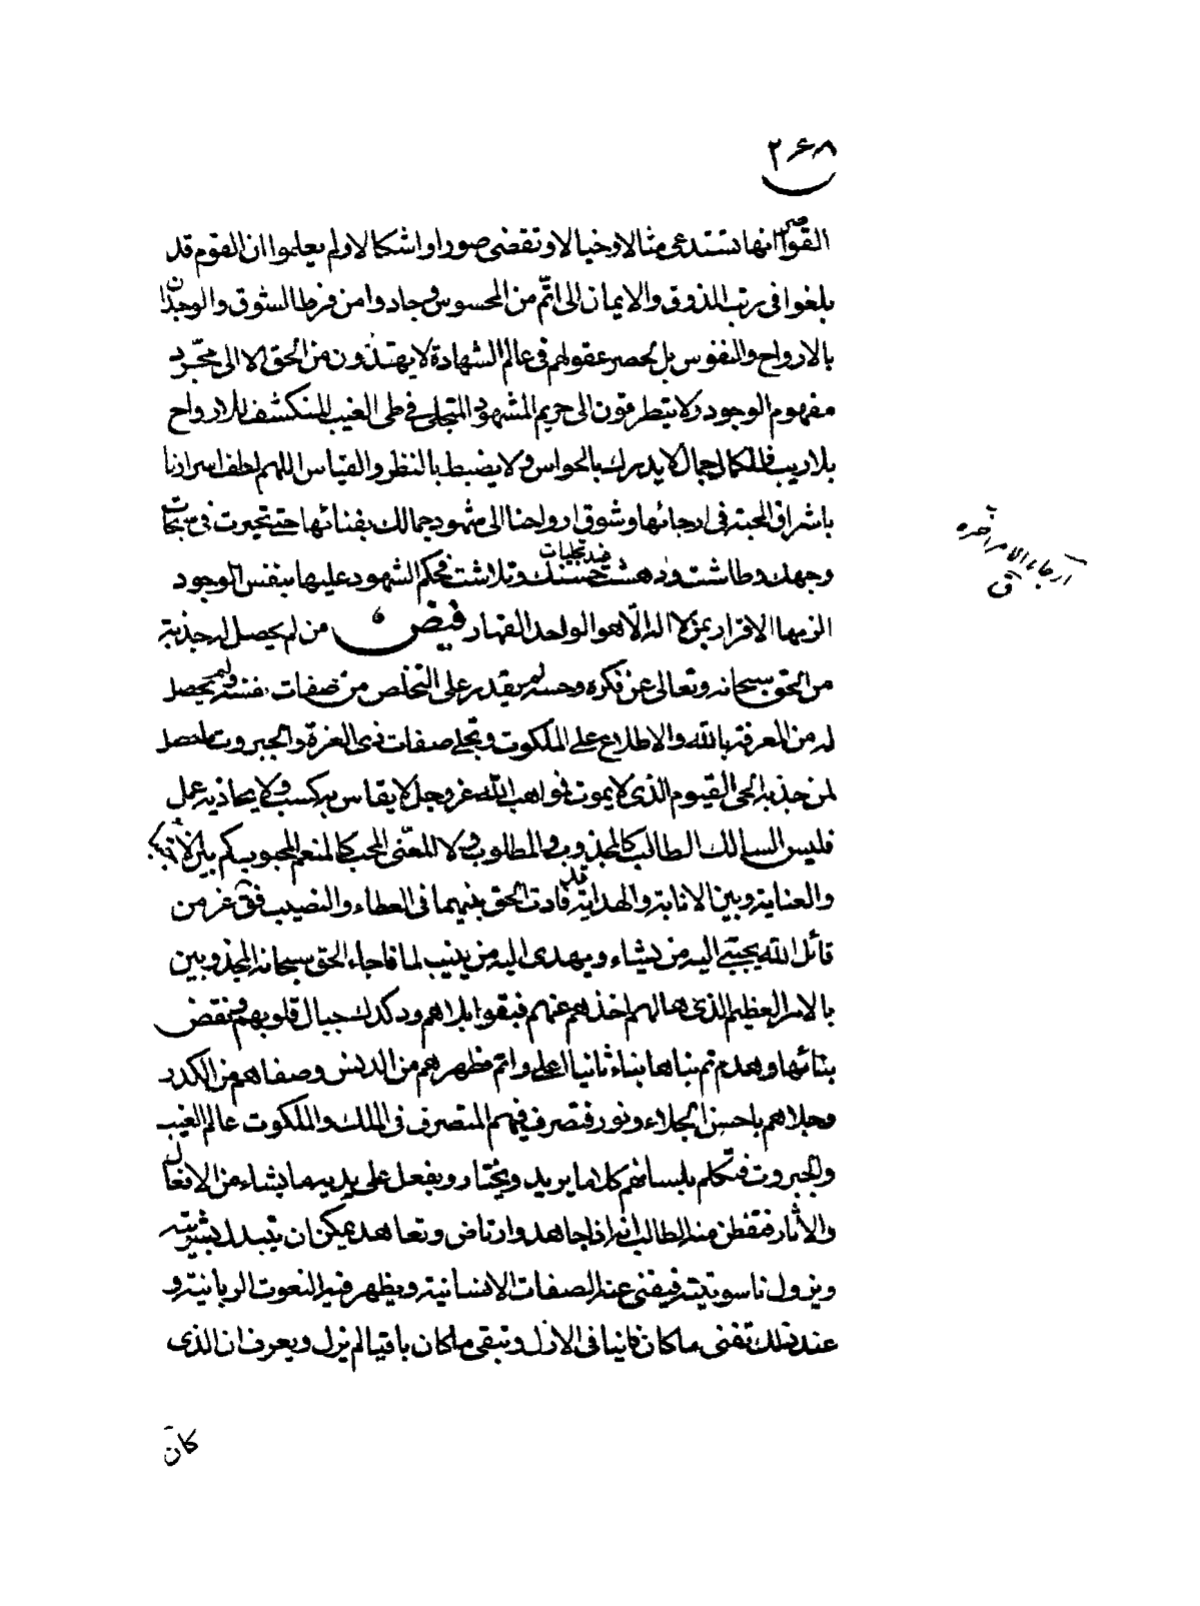 ۲۶۸
القواصر انها تستدعى مثالا وخيالا وتقضى صورا واشكالا ولم يعلموا ان القوم قد
بلغوا فى رتب الذوق والايمان الى اتمّ من المحسوس وجادوا من فرط الشوق والوجدان
بالارواح والنفوس بل لحصر عقولهم فى عالم الشهادة لا يهتدون من الحق الا الى مجرّد
مفهوم الوجود ولا يتطرقون الى حريم المشهود المتجلى فى طى الغيب المنكشف للارواح
بلا ريب فللكمال جمال لا يدرك بالحواس ولا يضبط بالنظر والقياس اللهم لطف اسرارنا
باشراق المحبة فى ارجائها وشوق ارواحنا الى شهود جمالك بفنائها حتى تحيرت فى سبحات
وجهك وطاشت ودهشت عند تجليات حسنك وتلاشت فحكم الشهود عليها بنفس الوجود
الزمها الاقرار بمن لا اله الّا هو الواحد القهار فيض من لم يحصل له جذبة
من الحق سبحانه وتعالى عن فكره وحسه لم يقدر على التخلص من صفات نفسه ولم يحصل
له من المعرفة بالله والاطلاع على الملكوت وتجلى صفات ذى العزة والجبروت ما حصل
لمن جذبه الحى القيوم الذى لا يموت فمواهب الله عز وجل لا يقاس بمكسب ولا يحاذيه عمل
فليس السالك الطالب كالمجذوب والمطلوب ولا للمعنّى المحب كالمنعم المحبوب كم بين
والعناية وبين الانابة والهداية قد فارق الحق بينهما فى العطاء والنصيب فقال عز من
قائل الله يجتبى اليه من يشاء ويهدى اليه من ينيب لما فاجاء الحق سبحانه المجذوبين
بالامر العظيم الذى هالهم اخذهم عنهم فبقوا بلاهم ودكدك جبال قلوبهم ونقض
بنائها وهدم ثم بناها بناء ثانيا اعلى واتم مطهرهم من الدنس وصفاهم من الكدر
وجلاهم باحسن الجلاء ونور فتصرف فيهم المتصرف فى الملك والملكوت عالم الغيب
والجبروت فتكلم بلسانهم كل ما يريد ويختار ويفعل على يديهم ما يشاء من الافعال
والاثار فتفطن منه الطالب انه اذا جاهد وارتاض وتعاهد يمكن ان يتبدل بشريته
ويزول ناسوتيته فيفنى عنه الصفات الانسانية ويظهر فيه النعوت الربانية و
عند ذلك تفنى ما كان فانيا فى الازل وتبقى ما كان باقيا لم يزل ويعرف ان الذى
كان